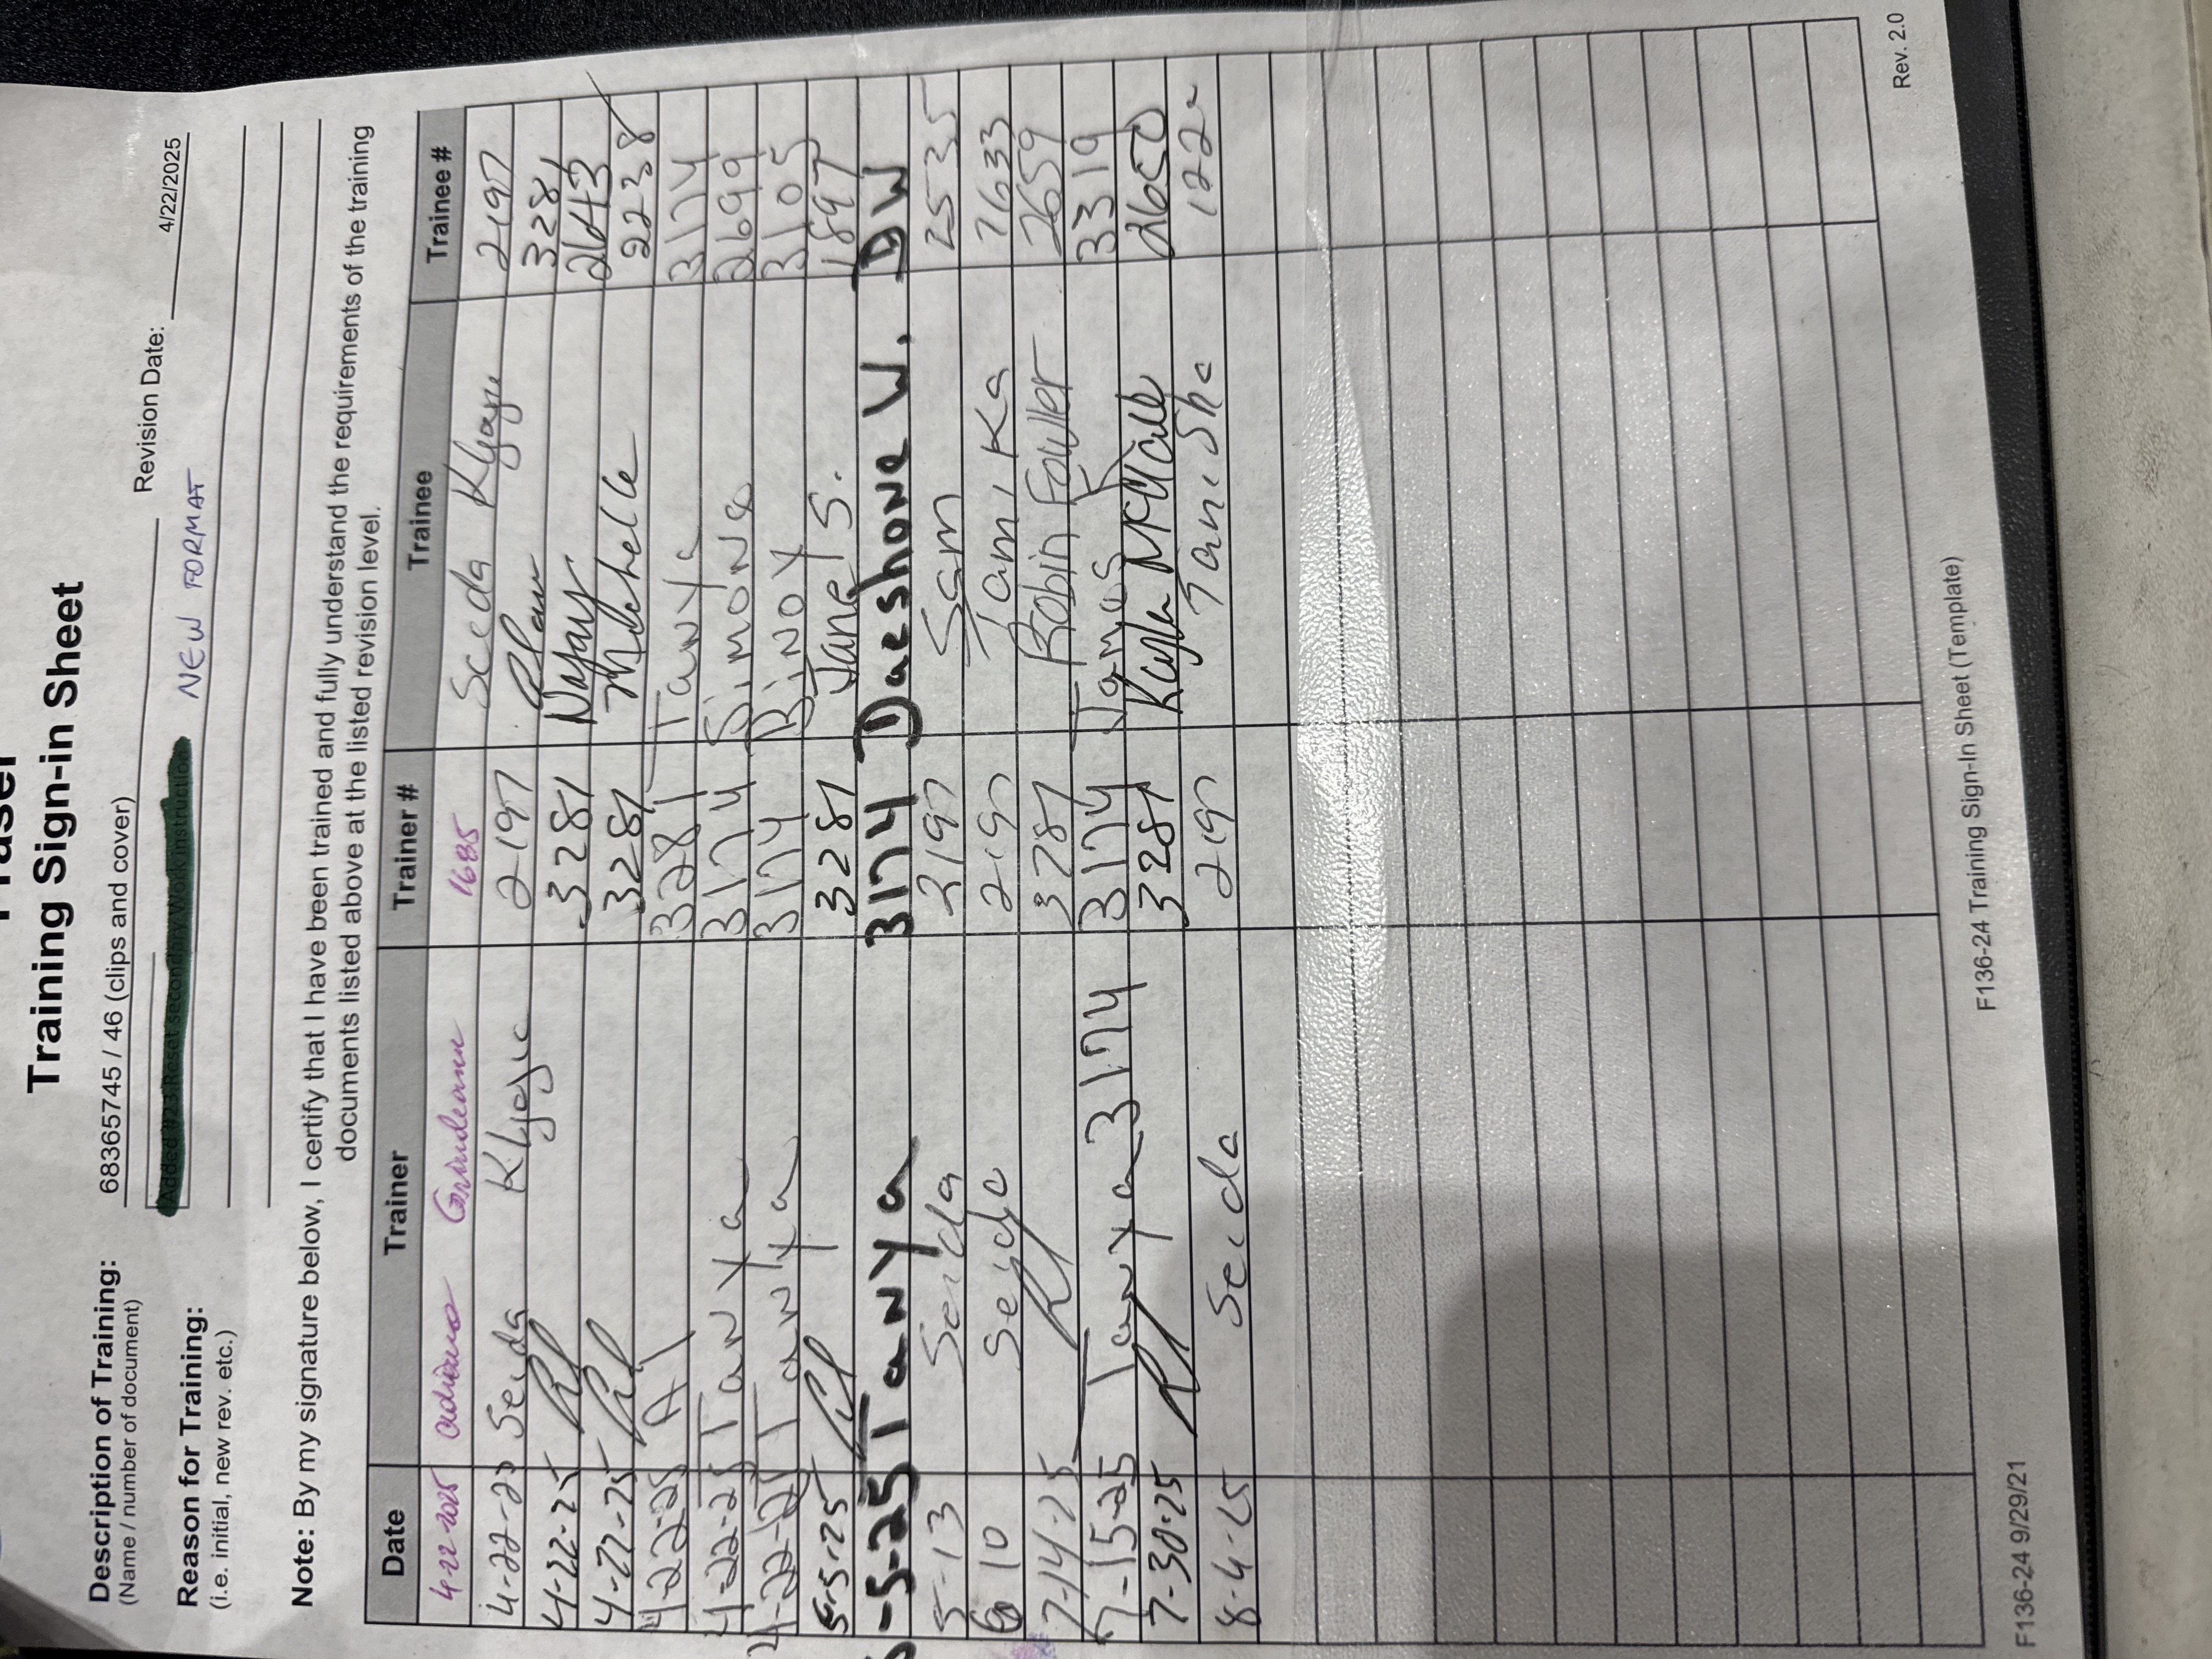 Training Sign-in Sheet
Description of Training: 68365745 / 46 (clips and cover) Revision Date: 4/22/2025
(Name / number of document)
Reason for Training: Added #23 Reset secondary Work instruction NEW FORMAT
(i.e. initial, new rev. etc.)
Note: By my signature below, I certify that I have been trained and fully understand the requirements of the training
documents listed above at the listed revision level.
Date Trainer Trainer # Trainee Trainee #
4-22-2025 1685 Seeda Klyogu 2197
4-22-25 Seida Klyogu 2197 3281
4-22-25 3281 Nayar 2643
4-22-25 3281 Michelle 2238
4-22-25 3281 Tanya 3174
4-22-25 Tanya 3174 Simone 2699
4-22-25 Tanya 3174 Binoy 3105
5-5-25 3281 Jane S. 1897
5-5-25 Tanya 3174 Daeshone W. DW
5-13 Seida 2197 Sam 2535
6 10 Seida 2197 Tamika 2633
7-14-25 3281 Robin Fowler 2659
7-15-25 Tanya 3174 3174 James 3319
7-30-25 3281 Kayla 2650
8-4-25 Seida 2197 Tanisha
F136-24 9/29/21 F136-24 Training Sign-In Sheet (Template) Rev. 2.0